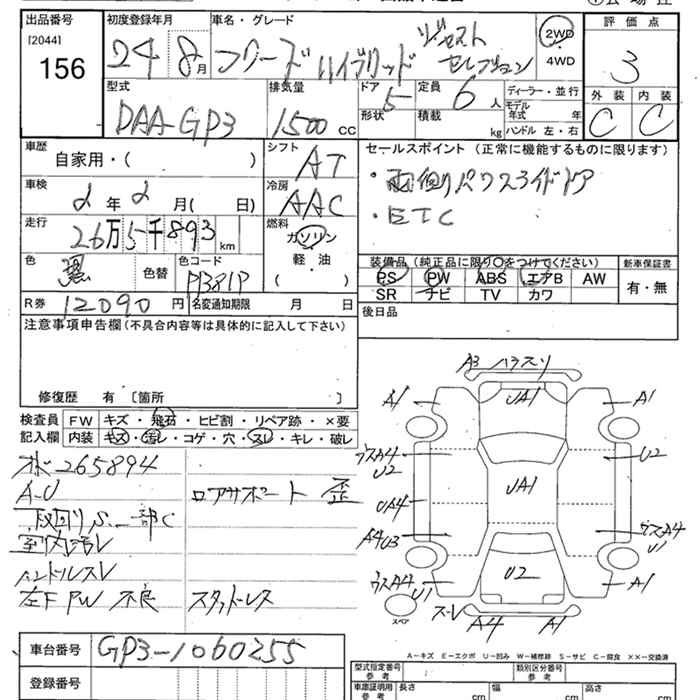 出品番号 [2044] 156
初度登録年月 24 8月
車名・グレード フリードハイブリッド ジャスト セレクション
2WD ・ 4WD
評価点 3
外装 C 内装 C
型式 DAA-GP3
排気量 1500 cc
ドア 5 形状
定員 6 人 積載 kg
ディーラー・並行
モデル年式 年式
ハンドル 左・右
車歴 自家用・( )
シフト AT
車検 2年2月( 日)
冷房 AAC
走行 26万5千893 km
燃料 ガソリン 軽・油 ( )
色 黒 色替 色コード
R券 12090円 名変通知期限 月 日
セールスポイント (正常に機能するものに限ります)
・両側パワスライドドア
・ETC
装備品 (純正品に限り○をつけてください) 新車保証書
PS PW ABS エアB AW 有・無
SR ナビ TV カワ
後日品
注意事項申告欄(不具合内容等は具体的に記入して下さい)
修復歴 有 〔箇所 〕
検査員 FW キズ・飛石・ヒビ割・リペア跡・×要
記入欄 内装 キズ・汚レ・コゲ・穴・スレ・キレ・破レ
オド265894
A-U ロアサポート 歪
下廻りS.一部C
室内汚V
ハンドルスV
左F PW 不良 スタッドレス
車台番号 GP3-1060255
登録番号
A3 ハラスリ
A1 UA1 A1
ウスA4 U2 U2
UA4 UA1
A4U3 ウスA4 U1
ウスA4 U1 U2 A1
スペア A4 A1
A-キズ E-エクボ U-凹み W-補修跡 S-サビ C-腐食 ××-交換済
型式指定番号 参考 類別区分番号 参考
車庫証明用 参考 長さ cm 幅 cm 高さ cm